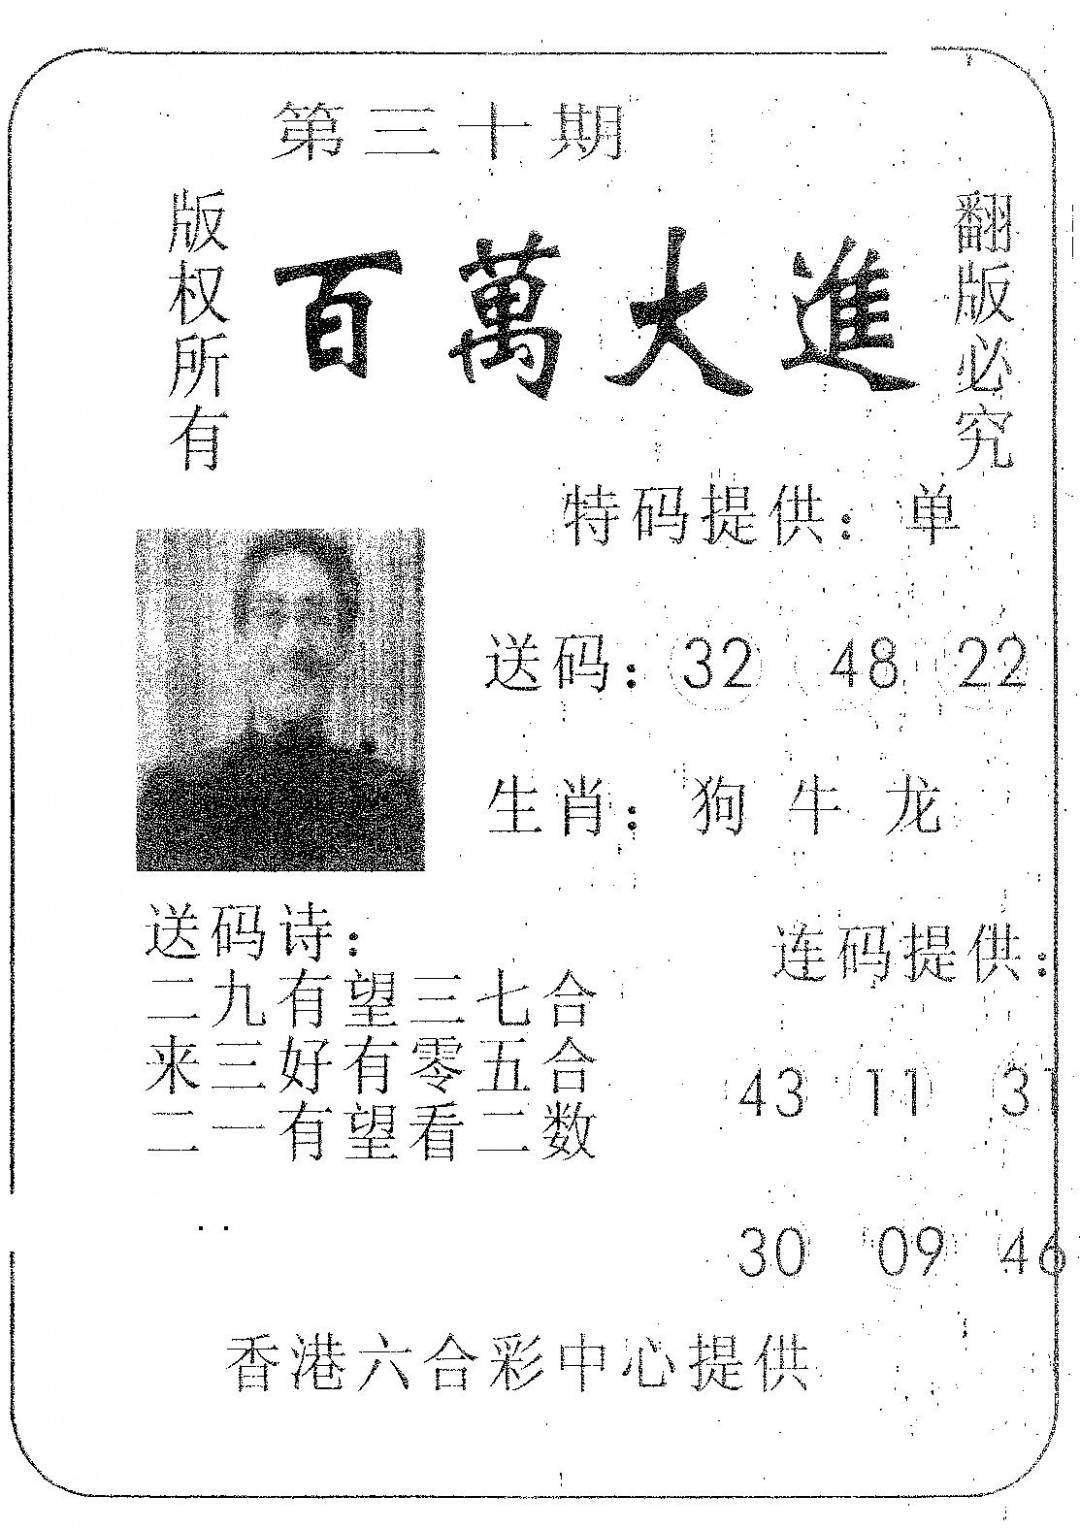 第三十期
版权所有
百萬大進
翻版必究
特码提供：单
送码：32 48 22
生肖：狗 牛 龙
送码诗：
二九有望三七合
来三好有零五合
二一有望看二数
连码提供：
43 11 31
30 09 46
香港六合彩中心提供